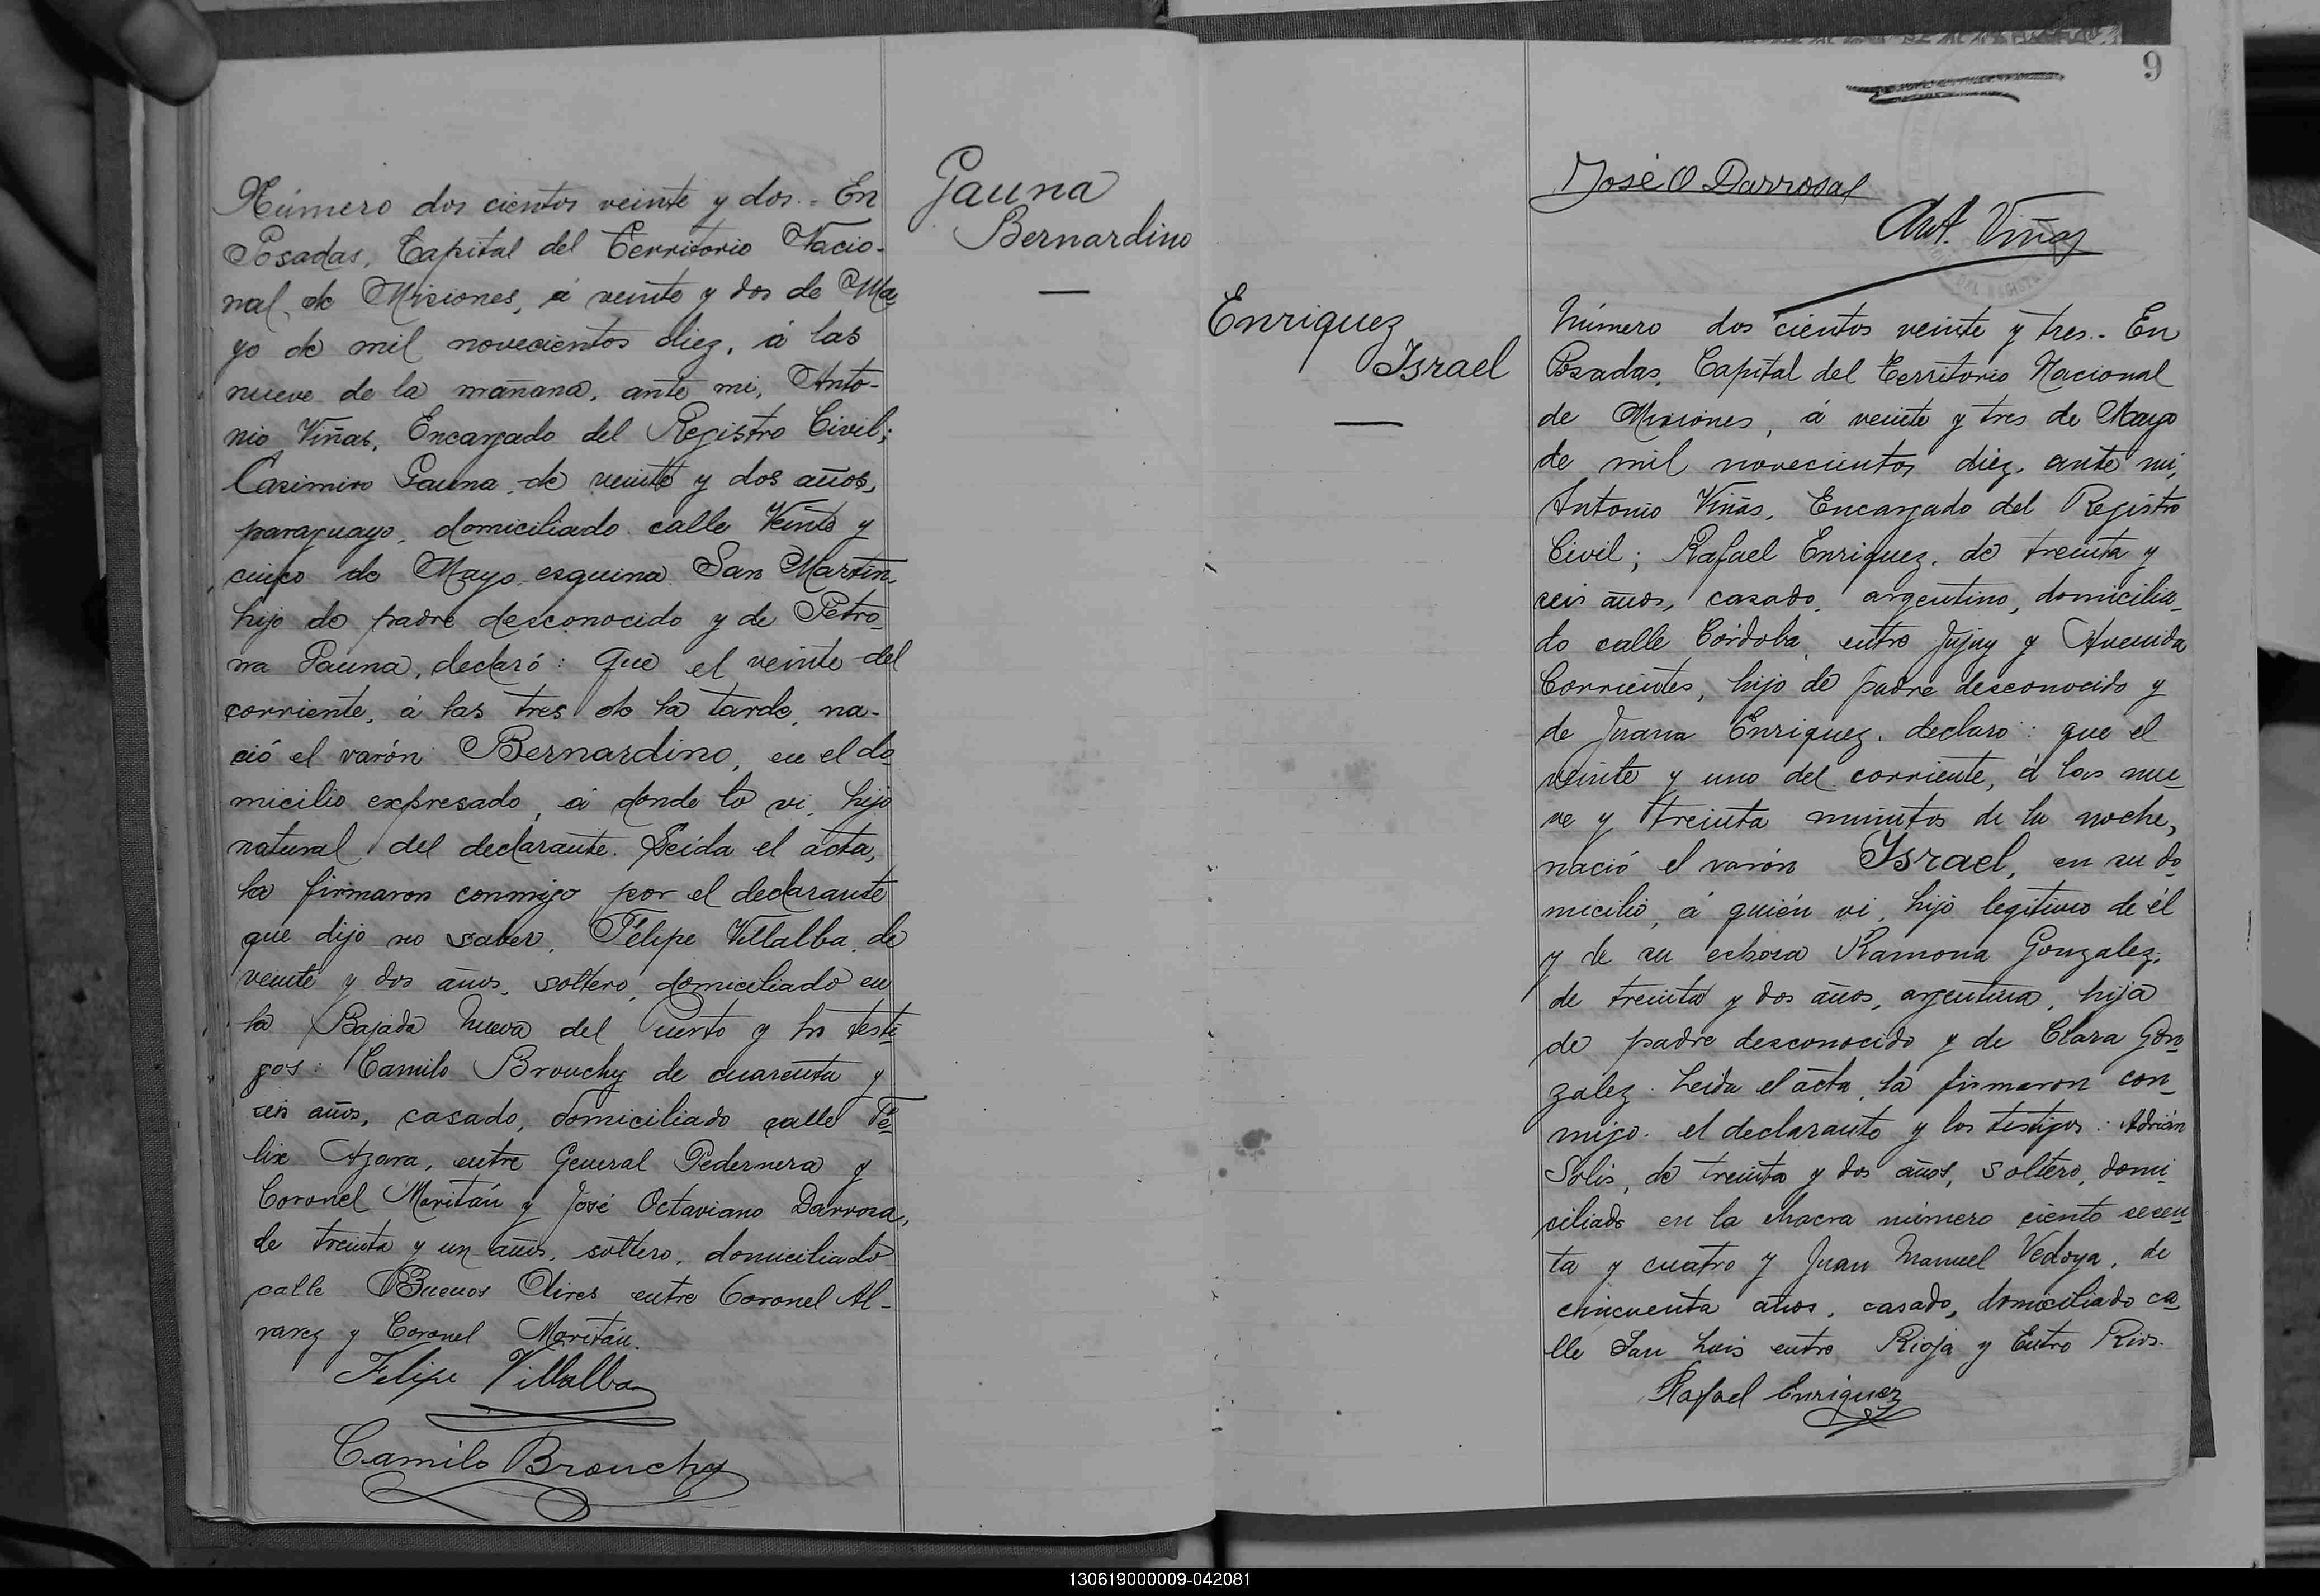 Número dos cientos veinte y dos.- En
Posadas, Capital del Territorio Nacio-
nal de Misiones, á veinte y dos de Ma
yo de mil novecientos diez, á las
nueve de la mañana, ante mi, Anto-
nio Viñas, Encargado del Registro Civil;
Casimiro Gauna, de veinte y dos años,
paraguayo, domiciliado calle Veinte y
cinco de Mayo esquina San Martin,
hijo de padre desconocido y de Petro-
na Gauna, declaró: que el veinte del
corriente, á las tres de la tarde, na-
ció el varón Bernardino, en el do
micilio expresado, á donde lo vi, hijo
natural del declarante. Leida el acta,
la firmaron conmigo por el declarante
que dijo no saber, Felipe Villalba, de
veinte y dos años, soltero, domiciliado en
la Bajada Nueva del Puerto y los testi
gos: Camilo Brouchy de cuarenta y
seis años, casado, domiciliado calle Fé-
lix Azara, entre General Pedernera y
Coronel Moritán y José Octaviano Darrosa,
de treinta y un años, soltero, domiciliado
calle Buenos Aires entre Coronel Al-
varez y Coronel Moritán.
Felipe Villalba
Camilo Brouchy
Gauna
Bernardino
9
José O Darrosa
Ant. Viñas
Enriquez
Israel
Número dos cientos veinte y tres.- En
Posadas, Capital del Territorio Nacional
de Misiones, á veinte y tres de Mayo
de mil novecientos diez, ante mi,
Antonio Viñas, Encargado del Registro
Civil; Rafael Enriquez, de treinta y
seis años, casado, argentino, domicilia-
do calle Córdoba, entre Jujuy y Avenida
Corrientes, hijo de padre desconocido y
de Juana Enriquez, declaro: que el
veinte y uno del corriente, á las nue-
ve y treinta minutos de la noche,
nació el varón Israel, en su do-
micilio, á quién vi, hijo legitimo de él
y de su esposa Ramona Gonzalez,
de treinta y dos años, argentina, hija
de padre desconocido y de Clara Gon-
zalez. Leida el acta, la firmaron con-
migo el declarante y los testigos: Adrián
Solis, de treinta y dos años, soltero, domi-
ciliado en la chacra número ciento secen-
ta y cuatro y Juan Manuel Vedoya, de
cincuenta años, casado, domiciliado ca-
lle San Luis entre Rioja y Entre Rios.
Rafael Enriquez
130619000009-042081